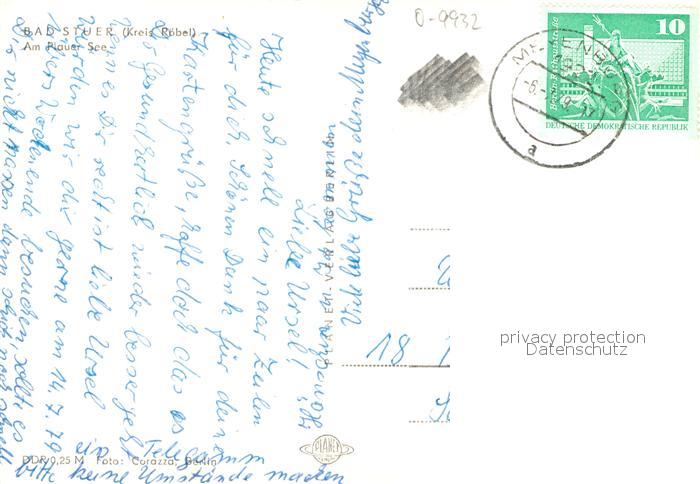 BAD STUER (Kreis Röbel)
Am Plauer See
0-9932
10
Berlin Rathausstraße
DEUTSCHE DEMOKRATISCHE REPUBLIK
a
Liebe Ursel!
Heute schnell ein paar Zeilen
für dich. Schönen Dank für deine
Kartengrüße, hoffe doch das es
dir Gesundheitlich wieder besser geht
Wenn es Dir recht ist liebe Ursel
würden wir dir gerne am 14.7.79
übers Wochenende besuchen sollte es
dir nicht passen dann schick noch schnell
ein Telegramm
bitte keine Umstände machen
Viele liebe Grüße dein
PLANET-VERLAG BERLIN
18
privacy protection
Datenschutz
PLANET
DDR 0,25 M Foto: Corazza, Berlin